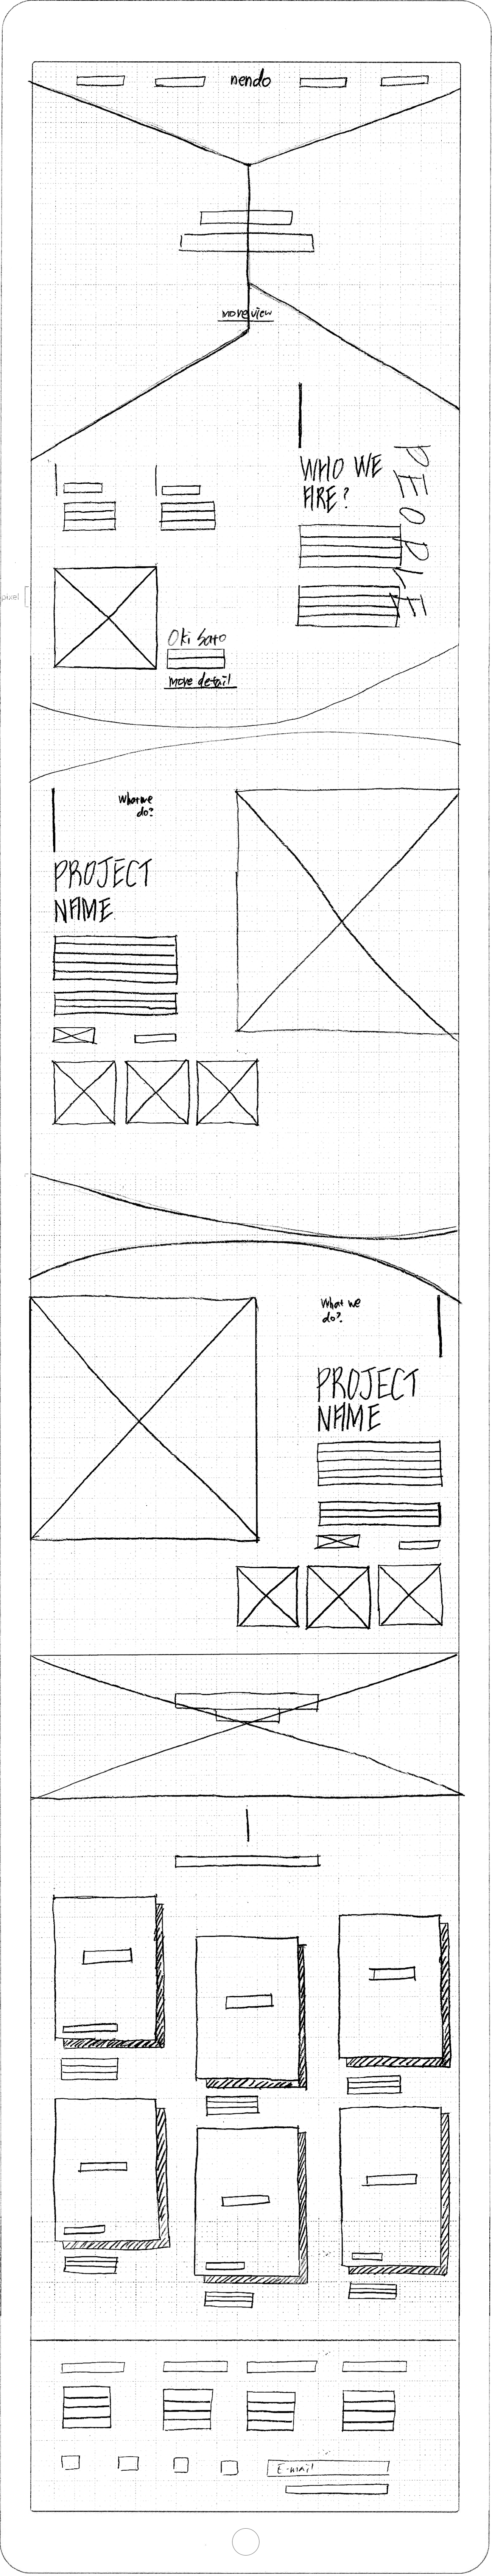 nendo
more view
WHO WE
ARE?
PEOPLE
pixel
Oki Sato
More detail
What we
do?
PROJECT
NAME
What we
do?
PROJECT
NAME
E-mail